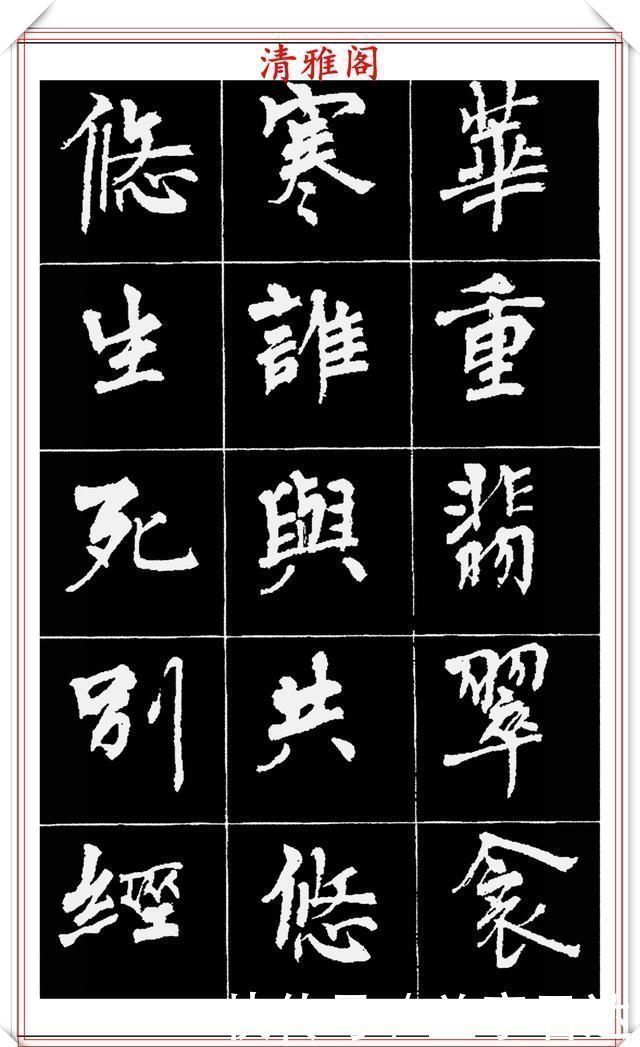 清雅阁
華重翡翠衾
寒誰與共悠
悠生死別經